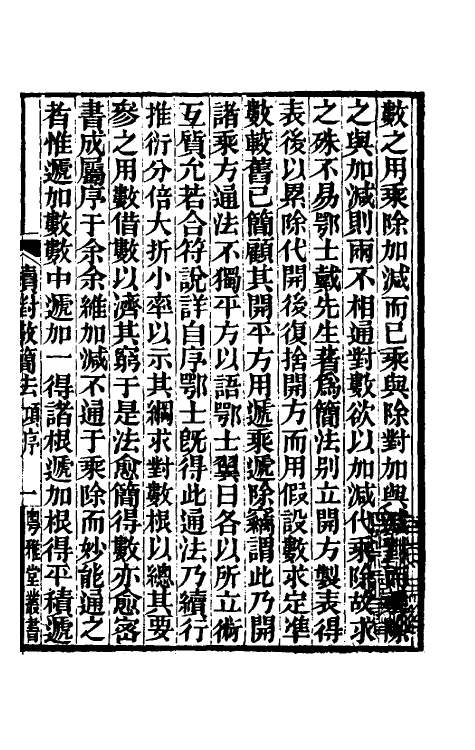 數之用乘除加減而已乘與除對加與減對而乘除
之與加減則兩不相通對數欲以加減代乘除故求
之殊不易鄂士戴先生舊為簡法別立開方製表得
表後以累除代開後復捨開方而用假設數求定準
數較舊已簡顧其開平方用遞乘遞除竊謂此乃開
諸乘方通法不獨平方以語鄂士翼日各以所立術
互質允若合符說詳自序鄂士既得此通法乃續行
推衍分倍大折小率以示其綱求對數根以總其要
參之用數借數以濟其窮于是法愈簡得數亦愈密
書成屬序于余余維加減不通于乘除而妙能通之
者惟遞加數數中遞加一得諸根遞加根得平積遞
續對數簡法 項序 一 粵雅堂叢書